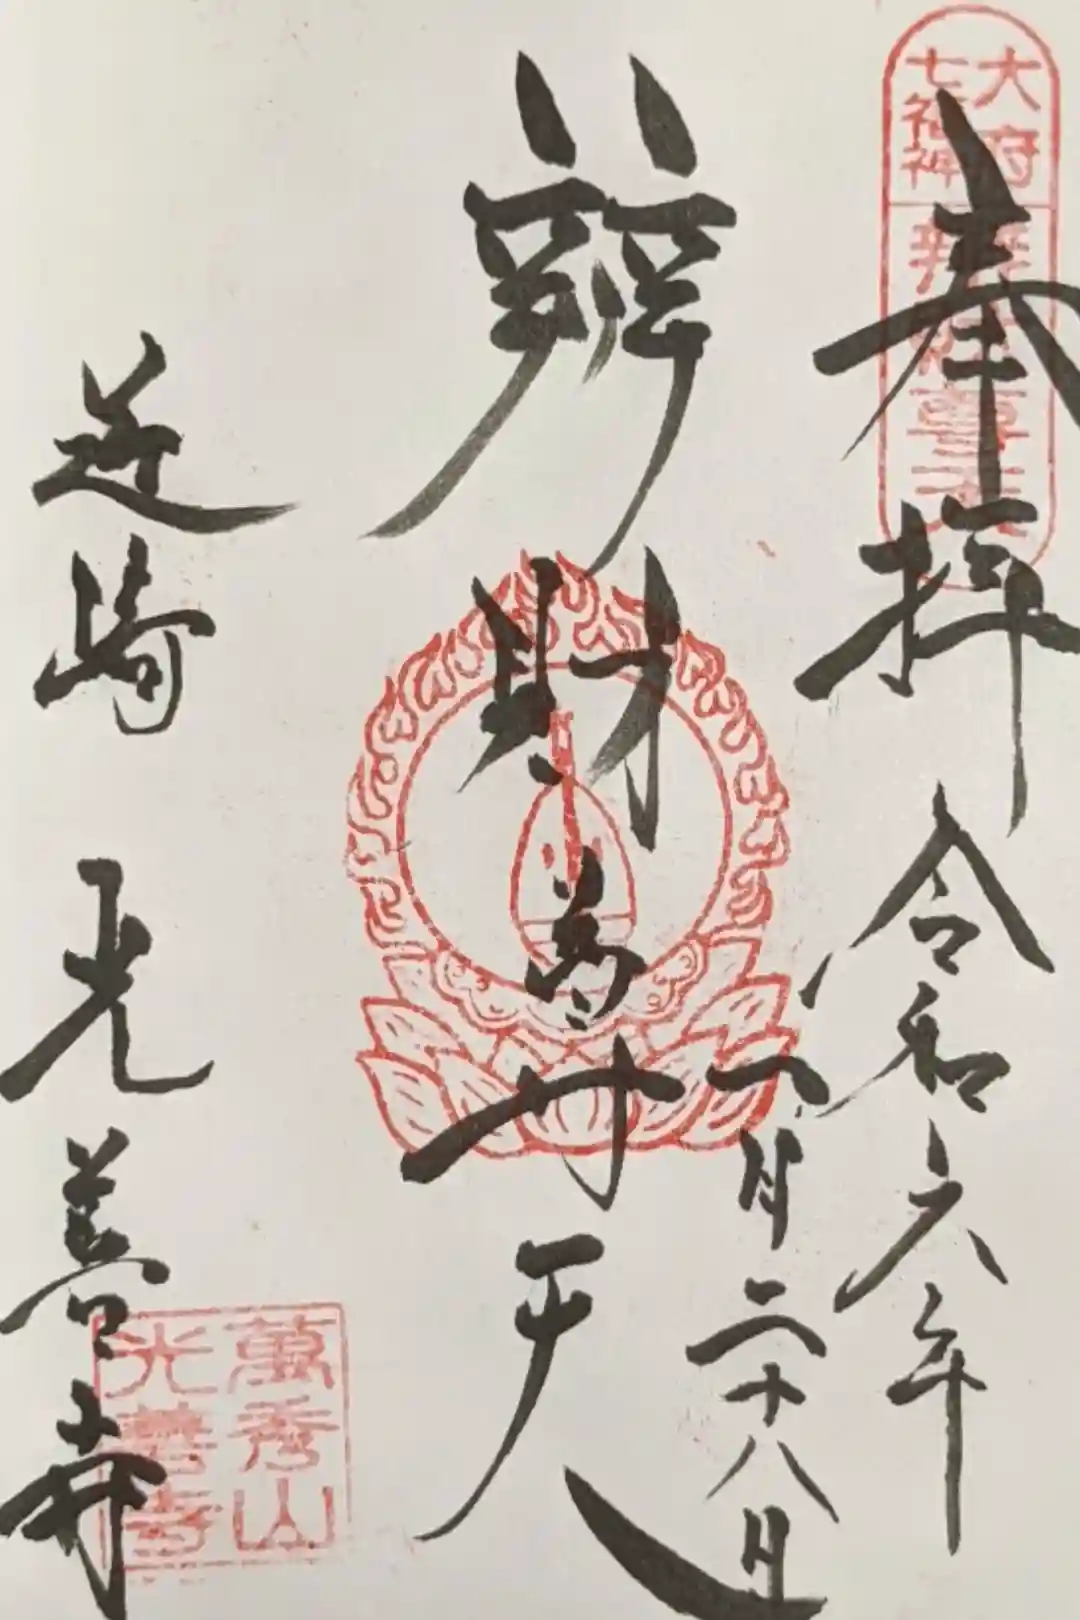 大府
七福神
辨財尊天
奉拝 令和六年
一月二十八日
辨財尊天
近崎 光善寺
萬秀山
光善寺